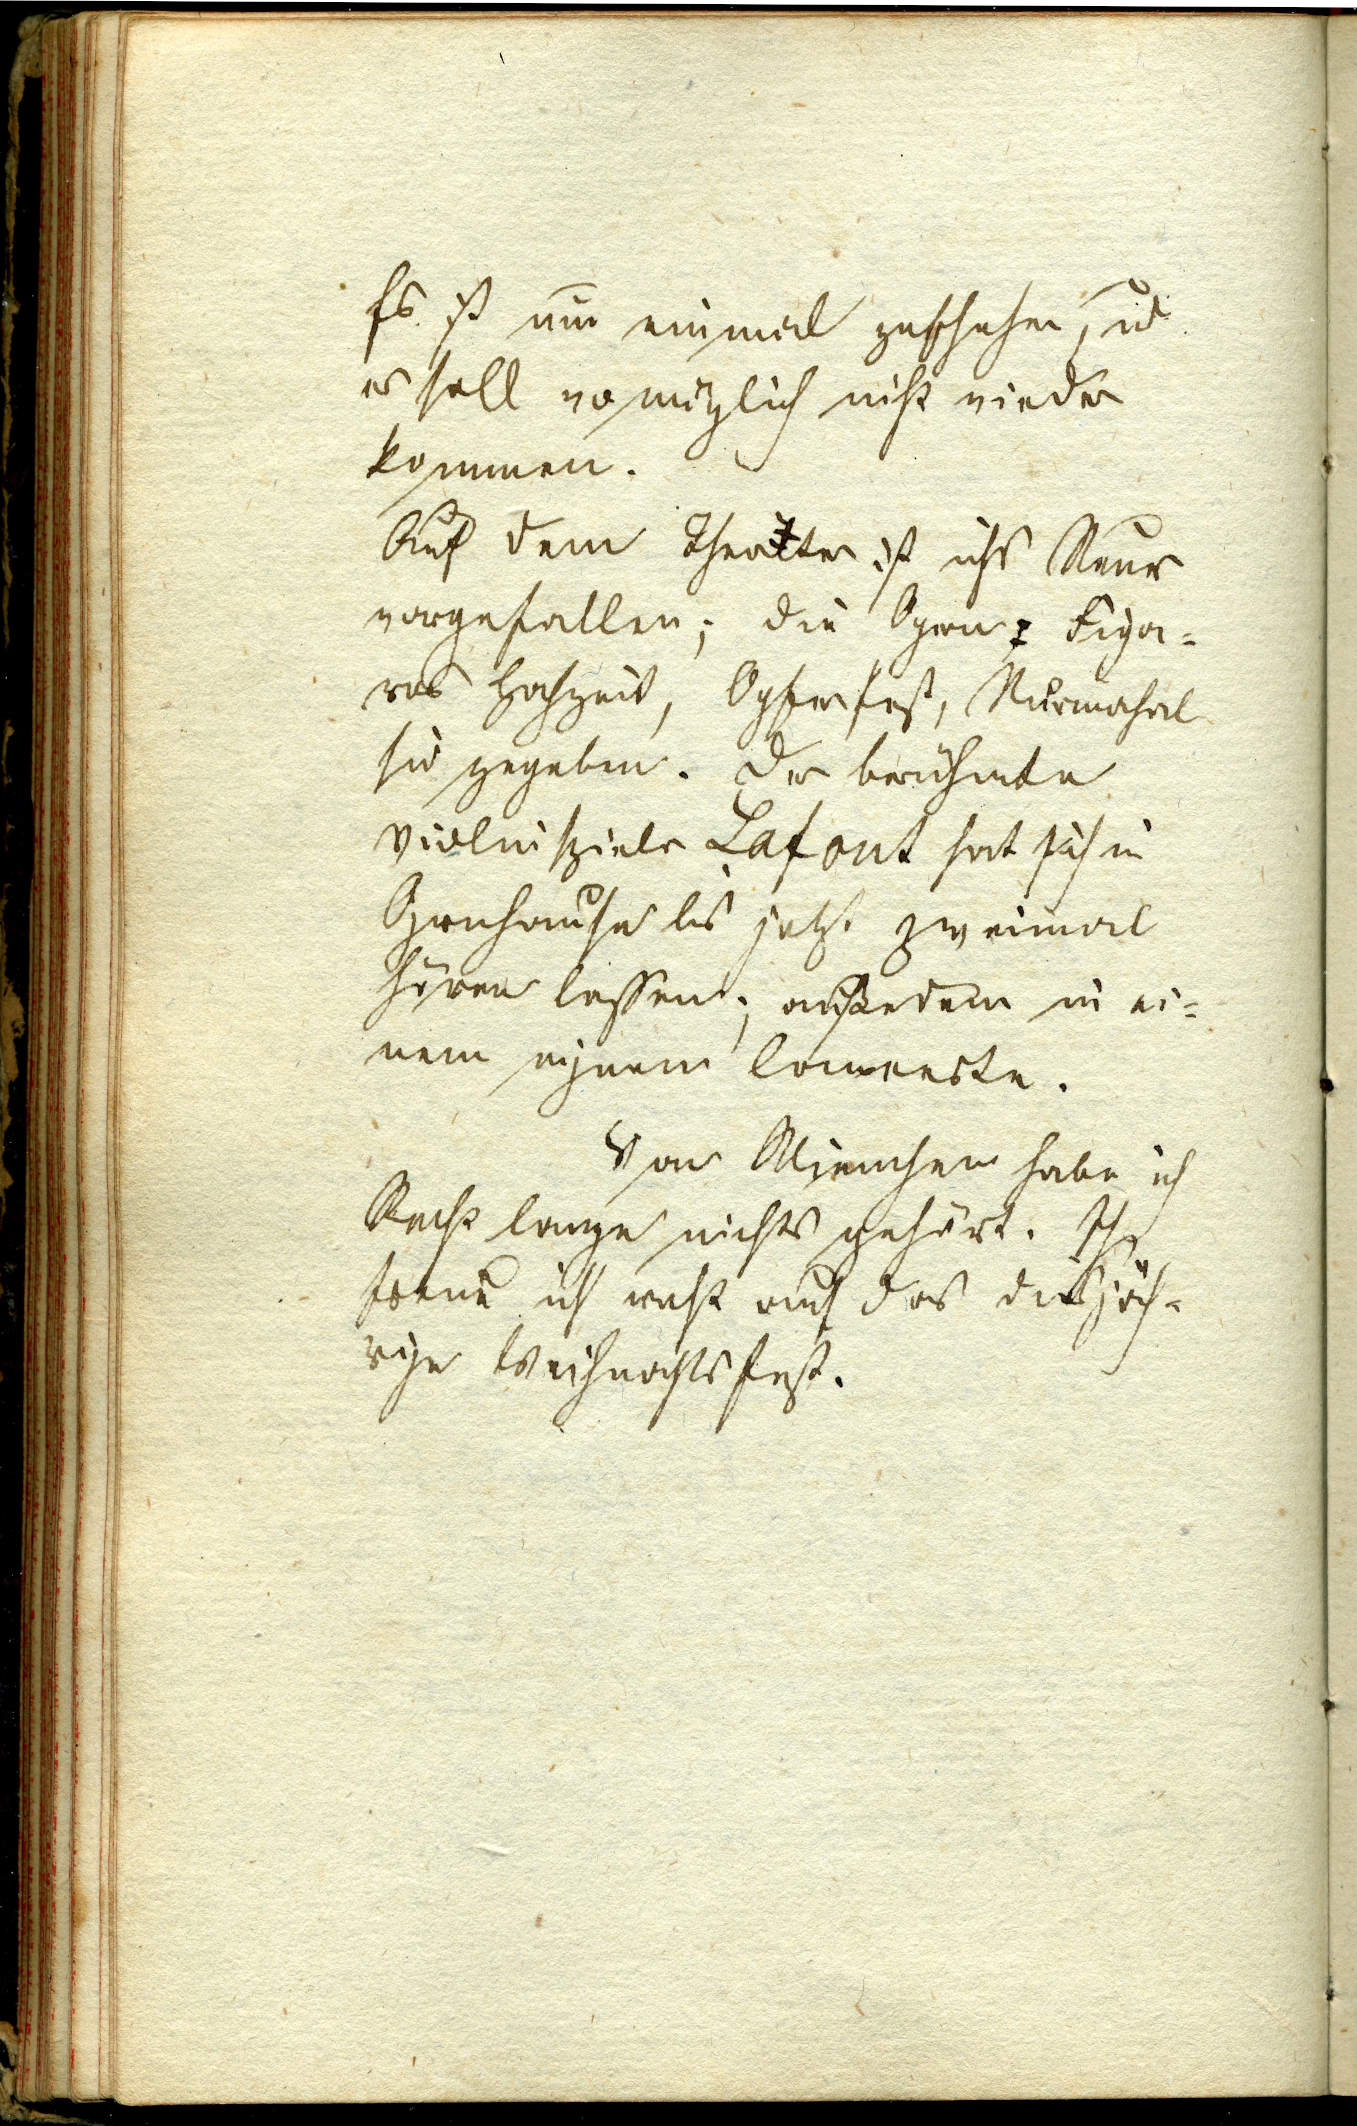 Es ist nun einmal geschehen, u
es soll womöglich nicht wieder
kommen.
Auf dem Theater ist nichts Neues
vorgefallen; die Opern: Figa-
ros Hochzeit, Opferfest, Nurmahal
sind gegeben. Der berühmte
Violinspieler Lafont hat sich im
Opernhause bis jetzt zweimal
hören lassen; außerdem in ei-
nem eignem Concerte.
Von Mienchen habe ich
Recht lange nichts gehört. Ich
freue ich recht auf das diesjäh-
rige Weihnachtsfest.